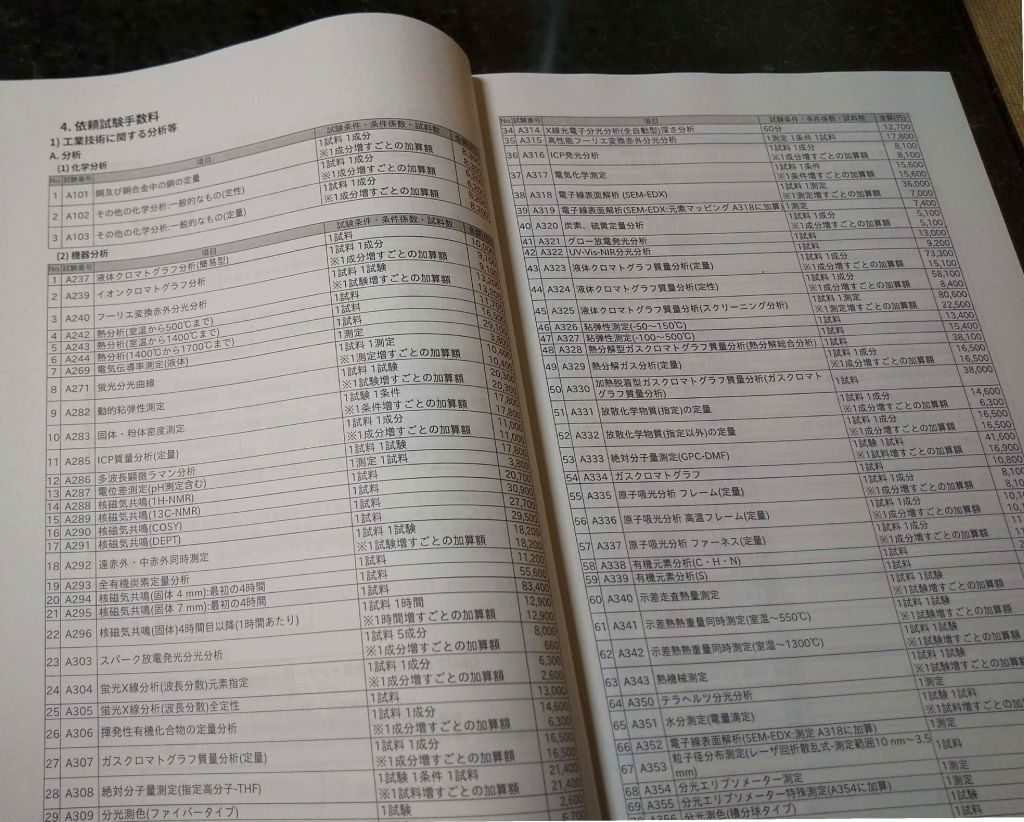 4. 依頼試験手数料
1) 工業技術に関する分析等
A. 分析
(1) 化学分析
No. 試験番号 項目 試験条件・条件係数・試料数
1 A101 銅及び銅合金中の銅の定量 1試料 1成分
※1成分増すごとの加算額
2 A102 その他の化学分析:一般的なもの(定性) 1試料 1成分
※1成分増すごとの加算額
3 A103 その他の化学分析:一般的なもの(定量) 1試料 1成分
※1成分増すごとの加算額
(2) 機器分析
No. 試験番号 項目 試験条件・条件係数・試料数
1 A237 液体クロマトグラフ分析(簡易型) 1試料
2 A239 イオンクロマトグラフ分析 1試料 1成分
※1成分増すごとの加算額
3 A240 フーリエ変換赤外分光分析 1試料 1試験
※1試験増すごとの加算額
4 A242 熱分析(室温から500℃まで) 1試料
5 A243 熱分析(室温から1400℃まで) 1試料
6 A244 熱分析(1400℃から1700℃まで) 1試料
7 A269 電気伝導率測定(液体) 1測定
8 A271 蛍光分光曲線 1試料 1測定
※1測定増すごとの加算額 10,400
9 A282 動的粘弾性測定 1試料 1試験 20,300
※1試験増すごとの加算額 20,300
10 A283 固体・粉体密度測定 1試験 1条件 17,800
※1条件増すごとの加算額 17,800
11 A285 ICP質量分析(定量) 1試料 1成分 11,000
※1成分増すごとの加算額 11,000
12 A286 多波長顕微ラマン分析 1試料 1試験 17,800
13 A287 電位差測定(pH測定含む) 1測定 1試料 3,800
14 A288 核磁気共鳴(1H-NMR) 1試料 20,700
15 A289 核磁気共鳴(13C-NMR) 1試料 30,900
16 A290 核磁気共鳴(COSY) 1試料 27,700
17 A291 核磁気共鳴(DEPT) 1試料 29,500
18 A292 遠赤外・中赤外同時測定 1試料 1試験 18,200
※1試験増すごとの加算額 18,200
19 A293 全有機炭素定量分析 1試料 11,200
20 A294 核磁気共鳴(固体 4 mm):最初の4時間 1試料 55,600
21 A295 核磁気共鳴(固体 7 mm):最初の4時間 1試料 83,400
22 A296 核磁気共鳴(固体)4時間目以降(1時間あたり) 1試料 1時間 12,900
※1時間増すごとの加算額 12,900
23 A303 スパーク放電発光分光分析 1試料 5成分 8,000
※1成分増すごとの加算額 660
24 A304 蛍光X線分析(波長分散)元素指定 1試料 1成分 6,300
※1成分増すごとの加算額 2,600
25 A305 蛍光X線分析(波長分散)全定性 1試料 13,000
26 A306 揮発性有機化合物の定量分析 1試料 1成分 14,600
※1成分増すごとの加算額 6,300
27 A307 ガスクロマトグラフ質量分析(定量) 1試料 1成分 16,500
※1成分増すごとの加算額 16,500
28 A308 絶対分子量測定(指定高分子-THF) 1試験 1条件 1試料 21,400
※1試料増すごとの加算額 21,400
29 A309 分光測色(ファイバータイプ) 1試験 2,600
No. 試験番号 項目 試験条件・条件係数・試料数 金額(円)
34 A314 X線光電子分光分析(全自動型)深さ分析 60分 12,700
35 A315 高性能フーリエ変換赤外分光分析 1測定 1条件 1試料 17,800
36 A316 ICP発光分析 1試料 1成分 8,100
※1成分増すごとの加算額 8,100
37 A317 電気化学測定 1試料 1条件 15,600
※1条件増すごとの加算額 15,600
38 A318 電子線表面解析 (SEM-EDX) 1試料 1測定 36,000
※1測定増すごとの加算額 7,000
39 A319 電子線表面解析(SEM-EDX:元素マッピング A318に加算) 1測定 7,400
40 A320 炭素、硫黄定量分析 1試料 1成分 5,100
※1成分増すごとの加算額 5,100
41 A321 グロー放電発光分析 1試料 13,000
42 A322 UV-Vis-NIR分光分析 1試料 9,200
43 A323 液体クロマトグラフ質量分析(定量) 1試料 1成分 73,300
※1成分増すごとの加算額 15,100
44 A324 液体クロマトグラフ質量分析(定性) 1試料 1成分 58,100
※1成分増すごとの加算額 8,400
45 A325 液体クロマトグラフ質量分析(スクリーニング分析) 1試料 1測定 80,600
※1測定増すごとの加算額 22,500
46 A326 粘弾性測定(-50～150℃) 1試料 13,400
47 A327 粘弾性測定(-100～500℃) 1試料 15,400
48 A328 熱分解型ガスクロマトグラフ質量分析(熱分解総合分析) 1試料 38,100
49 A329 熱分解ガス分析(定量) 1試料 1成分 16,500
※1成分増すごとの加算額 16,500
50 A330 加熱脱着型ガスクロマトグラフ質量分析(ガスクロマト 1試料 38,000
グラフ質量分析)
51 A331 放散化学物質(指定)の定量 1試料 1成分 14,600
※1成分増すごとの加算額 6,300
52 A332 放散化学物質(指定以外)の定量 1試料 1成分 16,500
※1成分増すごとの加算額 16,500
53 A333 絶対分子量測定(GPC-DMF) 1試験 1試料 41,600
※1試料増すごとの加算額 16,900
54 A334 ガスクロマトグラフ 1試料 10,800
55 A335 原子吸光分析 フレーム(定量) 1試料 1成分
※1成分増すごとの加算額
56 A336 原子吸光分析 高温フレーム(定量) 1試料 1成分
※1成分増すごとの加算額
57 A337 原子吸光分析 ファーネス(定量) 1試料 1成分
※1成分増すごとの加算額
58 A338 有機元素分析(C・H・N) 1試料
59 A339 有機元素分析(S) 1試料
60 A340 示差走査熱量測定 1試料 1試験
※1試験増すごとの加算額
61 A341 示差熱熱重量同時測定(室温～550℃) 1試料 1試験
※1試験増すごとの加算額
62 A342 示差熱熱重量同時測定(室温～1300℃) 1試料 1試験
※1試験増すごとの加算額
63 A343 熱機械測定 1試料 1試験
※1試験増すごとの加算額
64 A350 テラヘルツ分光分析 1測定
65 A351 水分測定(電量滴定) 1試験 1試料
※1試料増すごとの加算額
66 A352 電子線表面解析(SEM-EDX:測定 A318に加算) 1測定
67 A353 粒子径分布測定(レーザ回折散乱式-測定範囲10 nm～3.5 1試料
mm)
68 A354 分光エリプソメーター測定 1測定
69 A355 分光エリプソメーター特殊測定(A354に加算) 1試験
A356 分光測色(積分球タイプ) 1試料